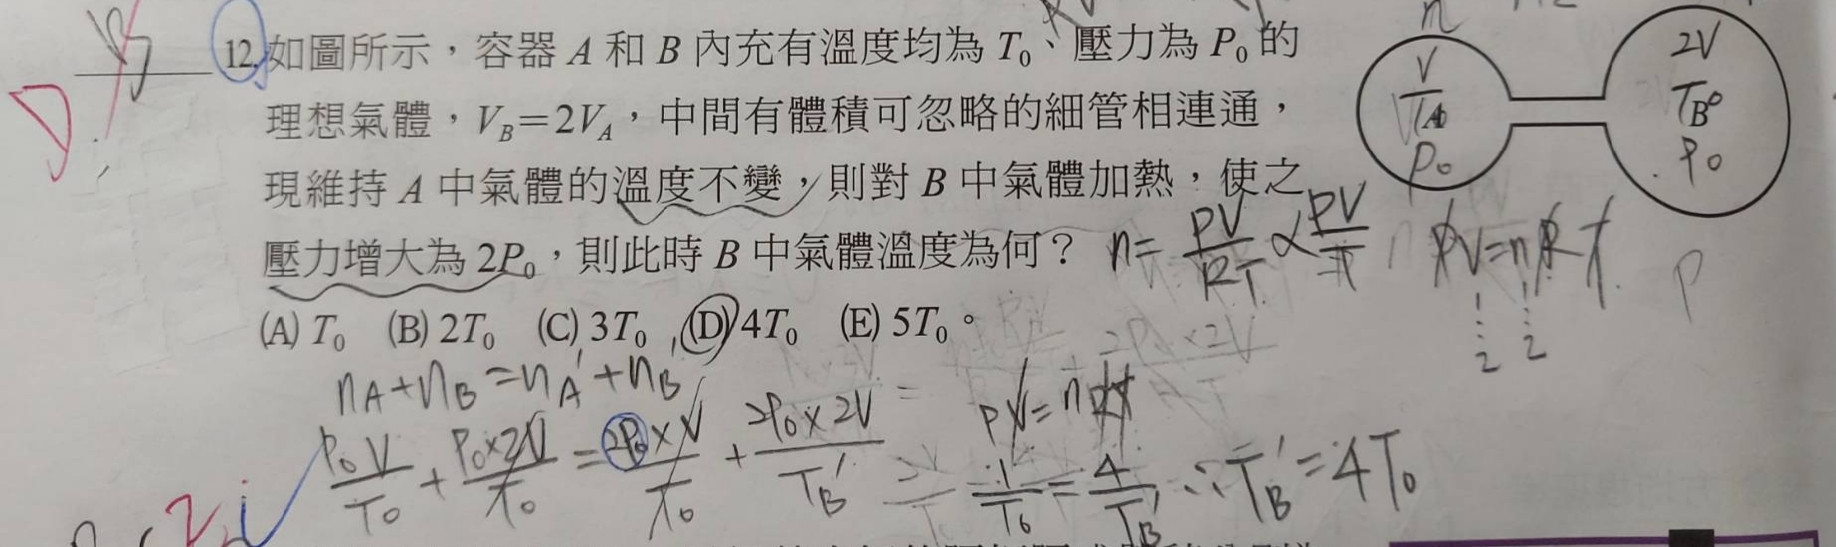 12.如圖所示，容器 A 和 B 內充有溫度均為 T₀、壓力為 P₀ 的
理想氣體，V_B=2V_A，中間有體積可忽略的細管相連通，
現維持 A 中氣體的溫度不變，則對 B 中氣體加熱，使之
壓力增大為 2P₀，則此時 B 中氣體溫度為何？
(A) T₀ (B) 2T₀ (C) 3T₀ (D) 4T₀ (E) 5T₀。
D
n
V
P₀
2V
P₀
n= PV/RT ∝ PV/T
PV=nRT
2 2
P
n_A+n_B=n_A'+n_B'
P₀V/T₀ + P₀×2V/T₀ = 2P₀×V/T₀ + 2P₀×2V/T_B'
PV=nRT
1/T₀ = 4/T_B' ∴T_B'=4T₀